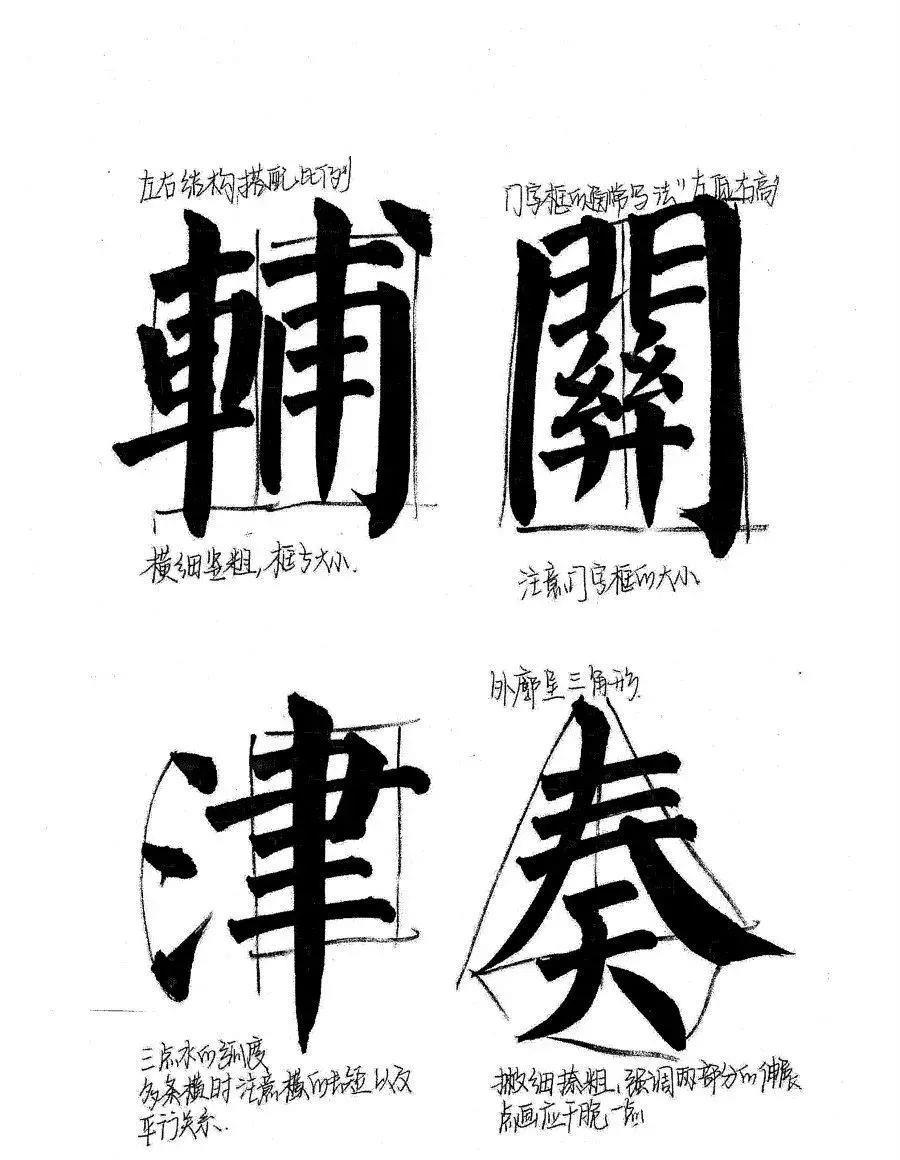 左右结构搭配比例
輔
横细竖粗，框与大小.
门字框的通常写法“左低右高”
關
注意门字框的大小
津
三点水的弧度
多条横时注意横的长短以及
平行关系.
外廓呈三角形.
奏
撇细捺粗，强调两部分的伸展
点画应干脆一点